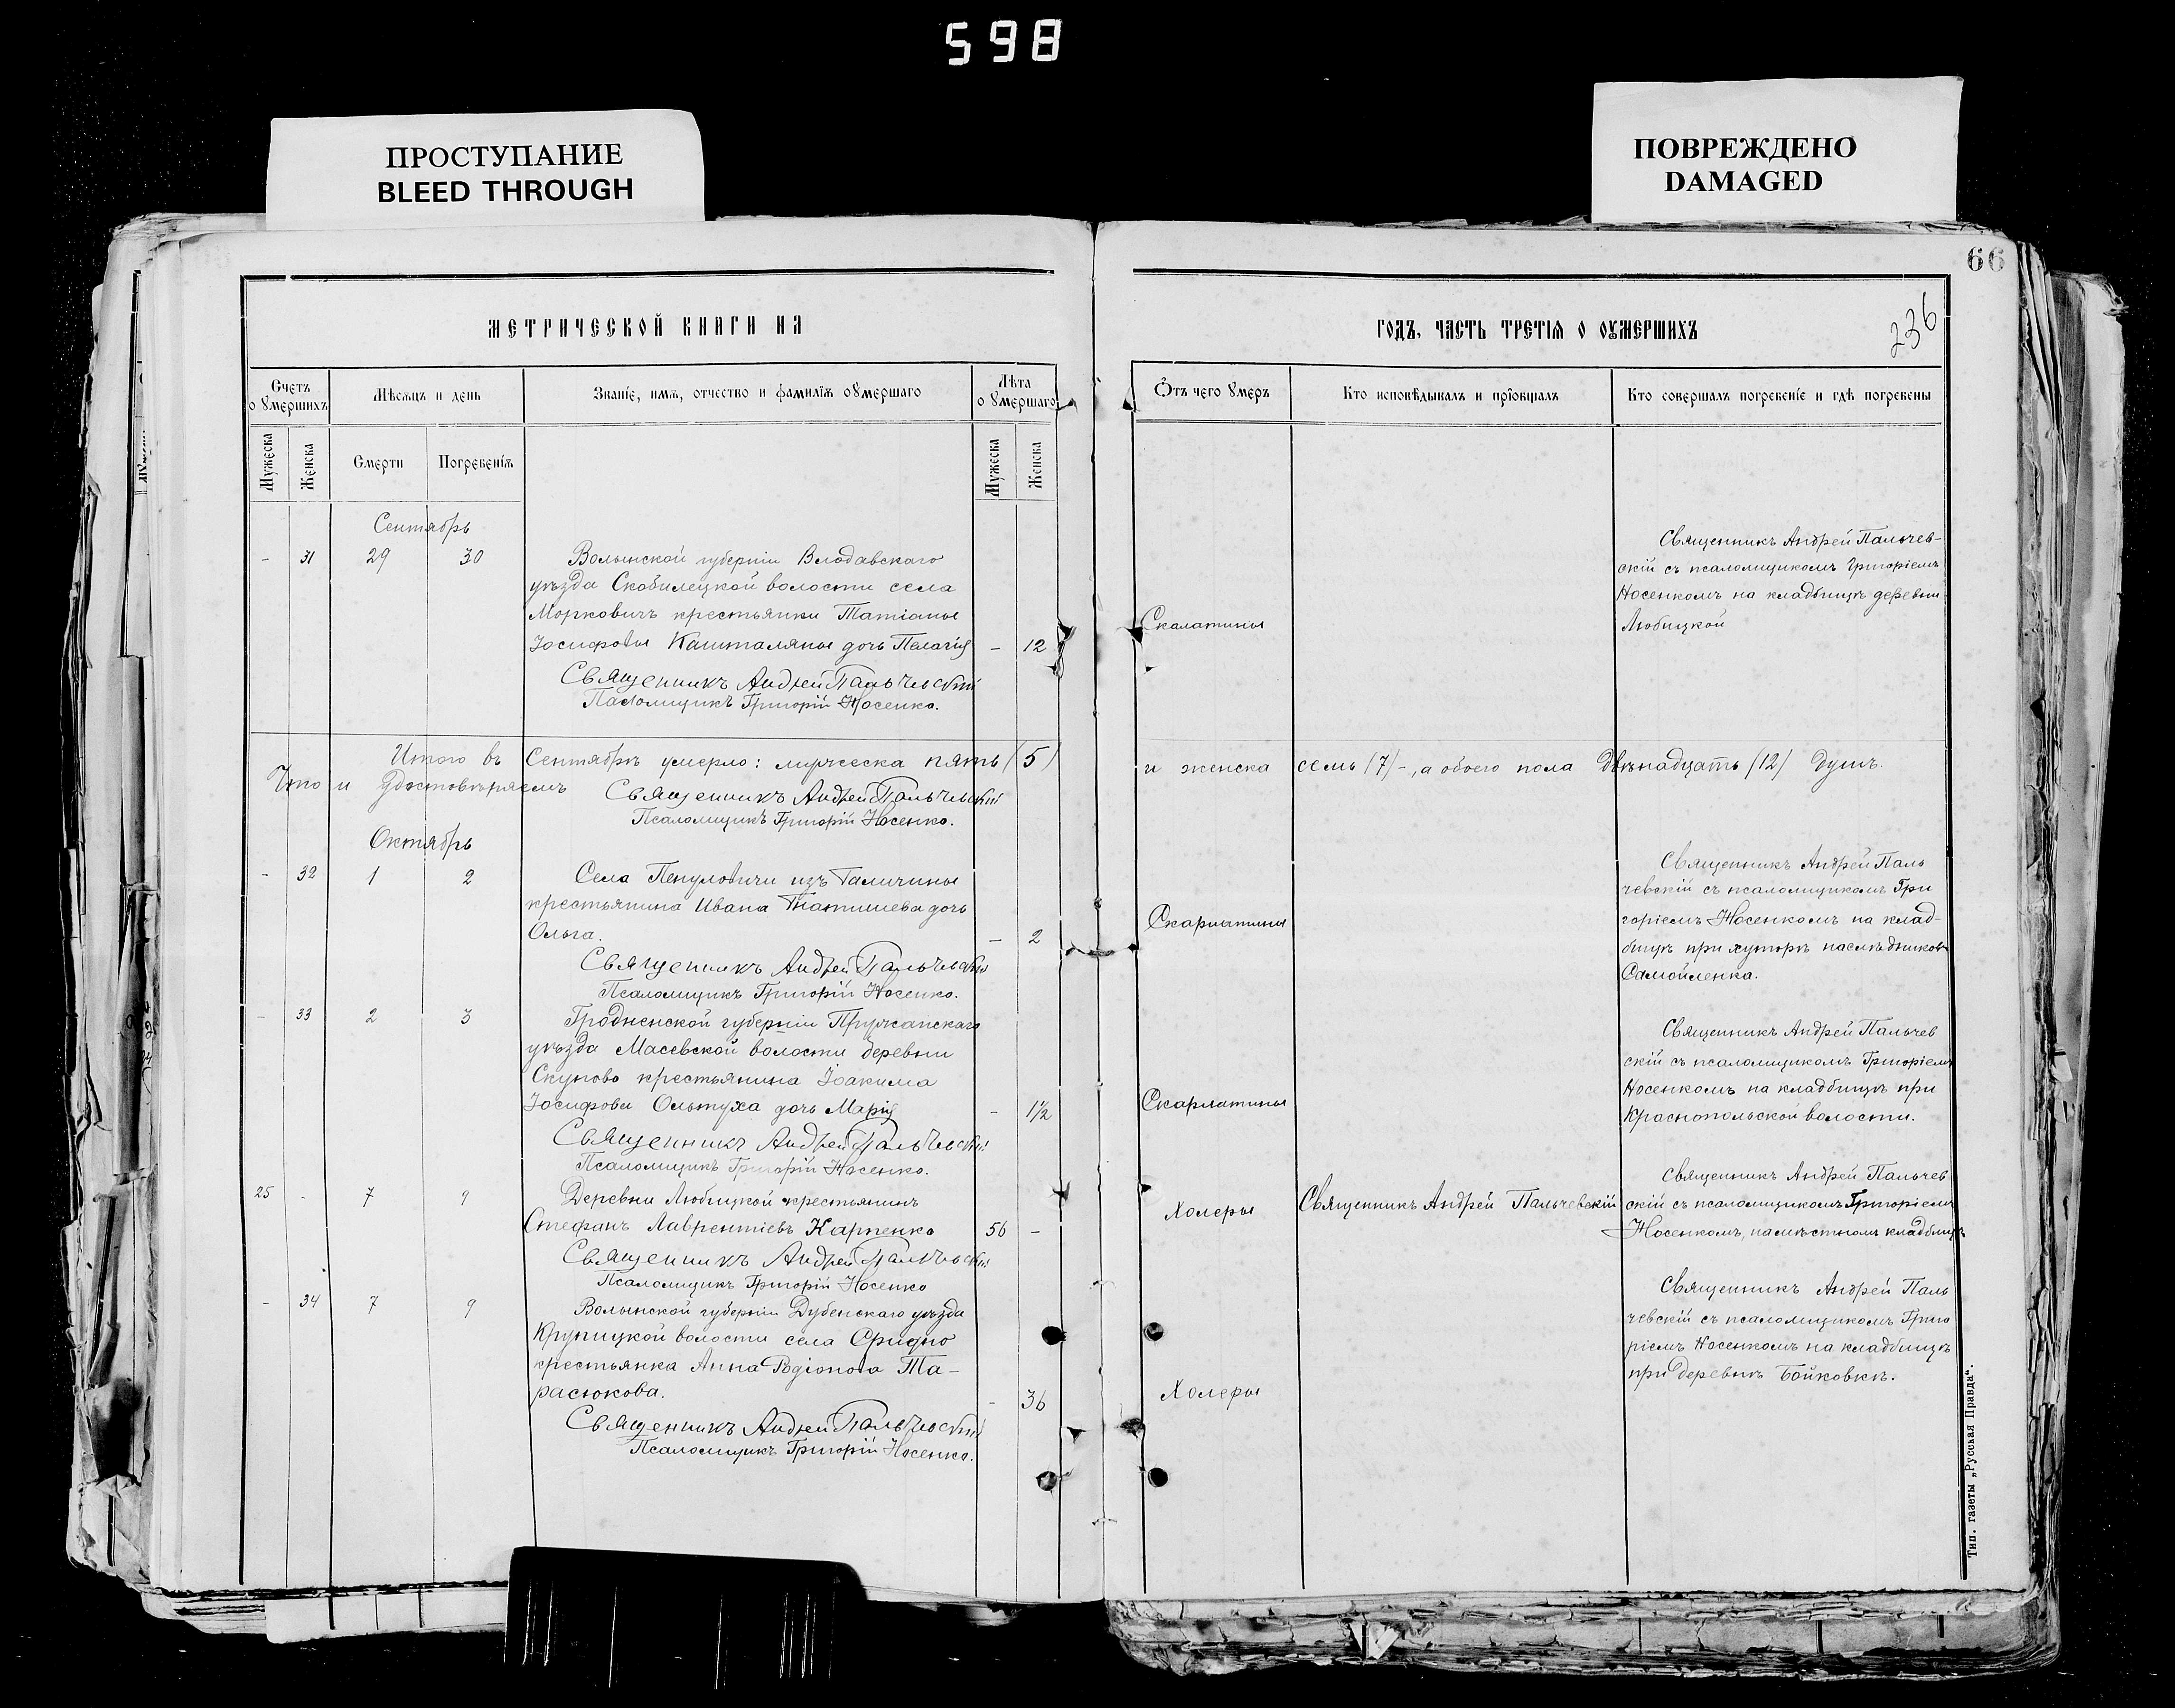 598
ПРОСТУПАНИЕ
BLEED THROUGH
ПОВРЕЖДЕНО
DAMAGED
66
236
МЕТРИЧЕСКОЙ КНИГИ НА
Счетъ о умершихъ
Мѣсяцъ и день
Званіе, имя, отчество и фамилія оумершаго
Лѣта о умершаго
Мужеска
Женска
Смерти
Погребенія
Мужеска
Женска
Сентябрь
- 31 29 30 Волынской губерніи Влодавскаго
уѣзда Скобилецкой волости села
Морковичъ крестьянки Татіаны
Іосифовы Кашталяны дочь Пелагія - 12
Священникъ Андрей Пальчевскій
Псаломщикъ Григорій Носенко.
Итого въ Сентябрѣ умерло: мужеска пять (5)
Что и удостовѣряемъ Священникъ Андрей Пальчевскій
Псаломщикъ Григорій Носенко.
Октябрь
- 32 1 2 Села Пенуловичи изъ Галичины
крестьянина Ивана дочь
Ольга. - 2
Священникъ Андрей Пальчевскій
Псаломщикъ Григорій Носенко.
- 33 2 3 Гродненской губерніи Пружанскаго
уѣзда Масевской волости деревни
Скупово крестьянина Іоакима
Іосифова Ольтуха дочь Марія - 1½
Священникъ Андрей Пальчевскій
Псаломщикъ Григорій Носенко.
25 - 7 9 Деревни Любицкой крестьянинъ
Стефанъ Лаврентіевъ Карпенко 56 -
Священникъ Андрей Пальчевскій
Псаломщикъ Григорій Носенко
- 34 7 9 Волынской губерніи Дубенскаго уѣзда
Крупицкой волости села
крестьянка Анна Родіонова Та-
расюкова. - 36
Священникъ Андрей Пальчевскій
Псаломщикъ Григорій Носенко.
ГОДЪ, ЧАСТЬ ТРЕТІЯ О ОУМЕРШИХЪ
Отъ чего умеръ
Кто исповѣдывалъ и пріобщалъ
Кто совершалъ погребеніе и гдѣ погребены
Скалатины
Священникъ Андрей Пальчев-
скій съ псаломщикомъ Григоріемъ
Носенкомъ на кладбищѣ деревни
Любицкой
и женска семь (7) -, а обоего пола двѣнадцать (12) душъ.
Скарлатины
Священникъ Андрей Паль
чевскій съ псаломщикомъ Гри
горіемъ Носенкомъ на клад-
бищѣ при хуторѣ наслѣдниковъ
Самойленка.
Скарлатины
Священникъ Андрей Пальчев
скій съ псаломщикомъ Григоріемъ
Носенкомъ на кладбищѣ при
Краснопольской волости.
Холеры
Священникъ Андрей Пальчевскій
Священникъ Андрей Пальчев
скій съ псаломщикомъ Григоріемъ
Носенкомъ, на мѣстномъ кладбищѣ
Холеры
Священникъ Андрей Паль
чевскій съ псаломщикомъ Григо
ріемъ Носенкомъ на кладбищѣ
при деревнѣ Бойковкѣ.
Тип. газеты „Русская Правда“.